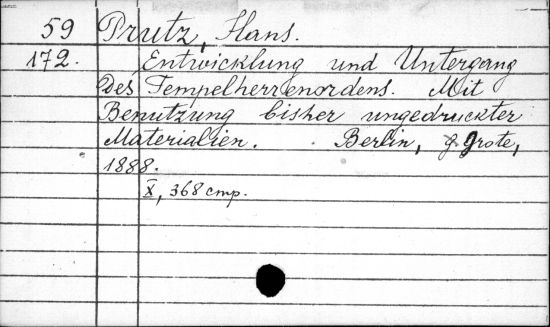 59 Prutz, Hans.
172. Entwicklung und Untergang
des Tempelherrenordens. Mit
Benutzung bisher ungedruckter
Materialien. Berlin, G. Grote,
1888.
X, 368 стр.